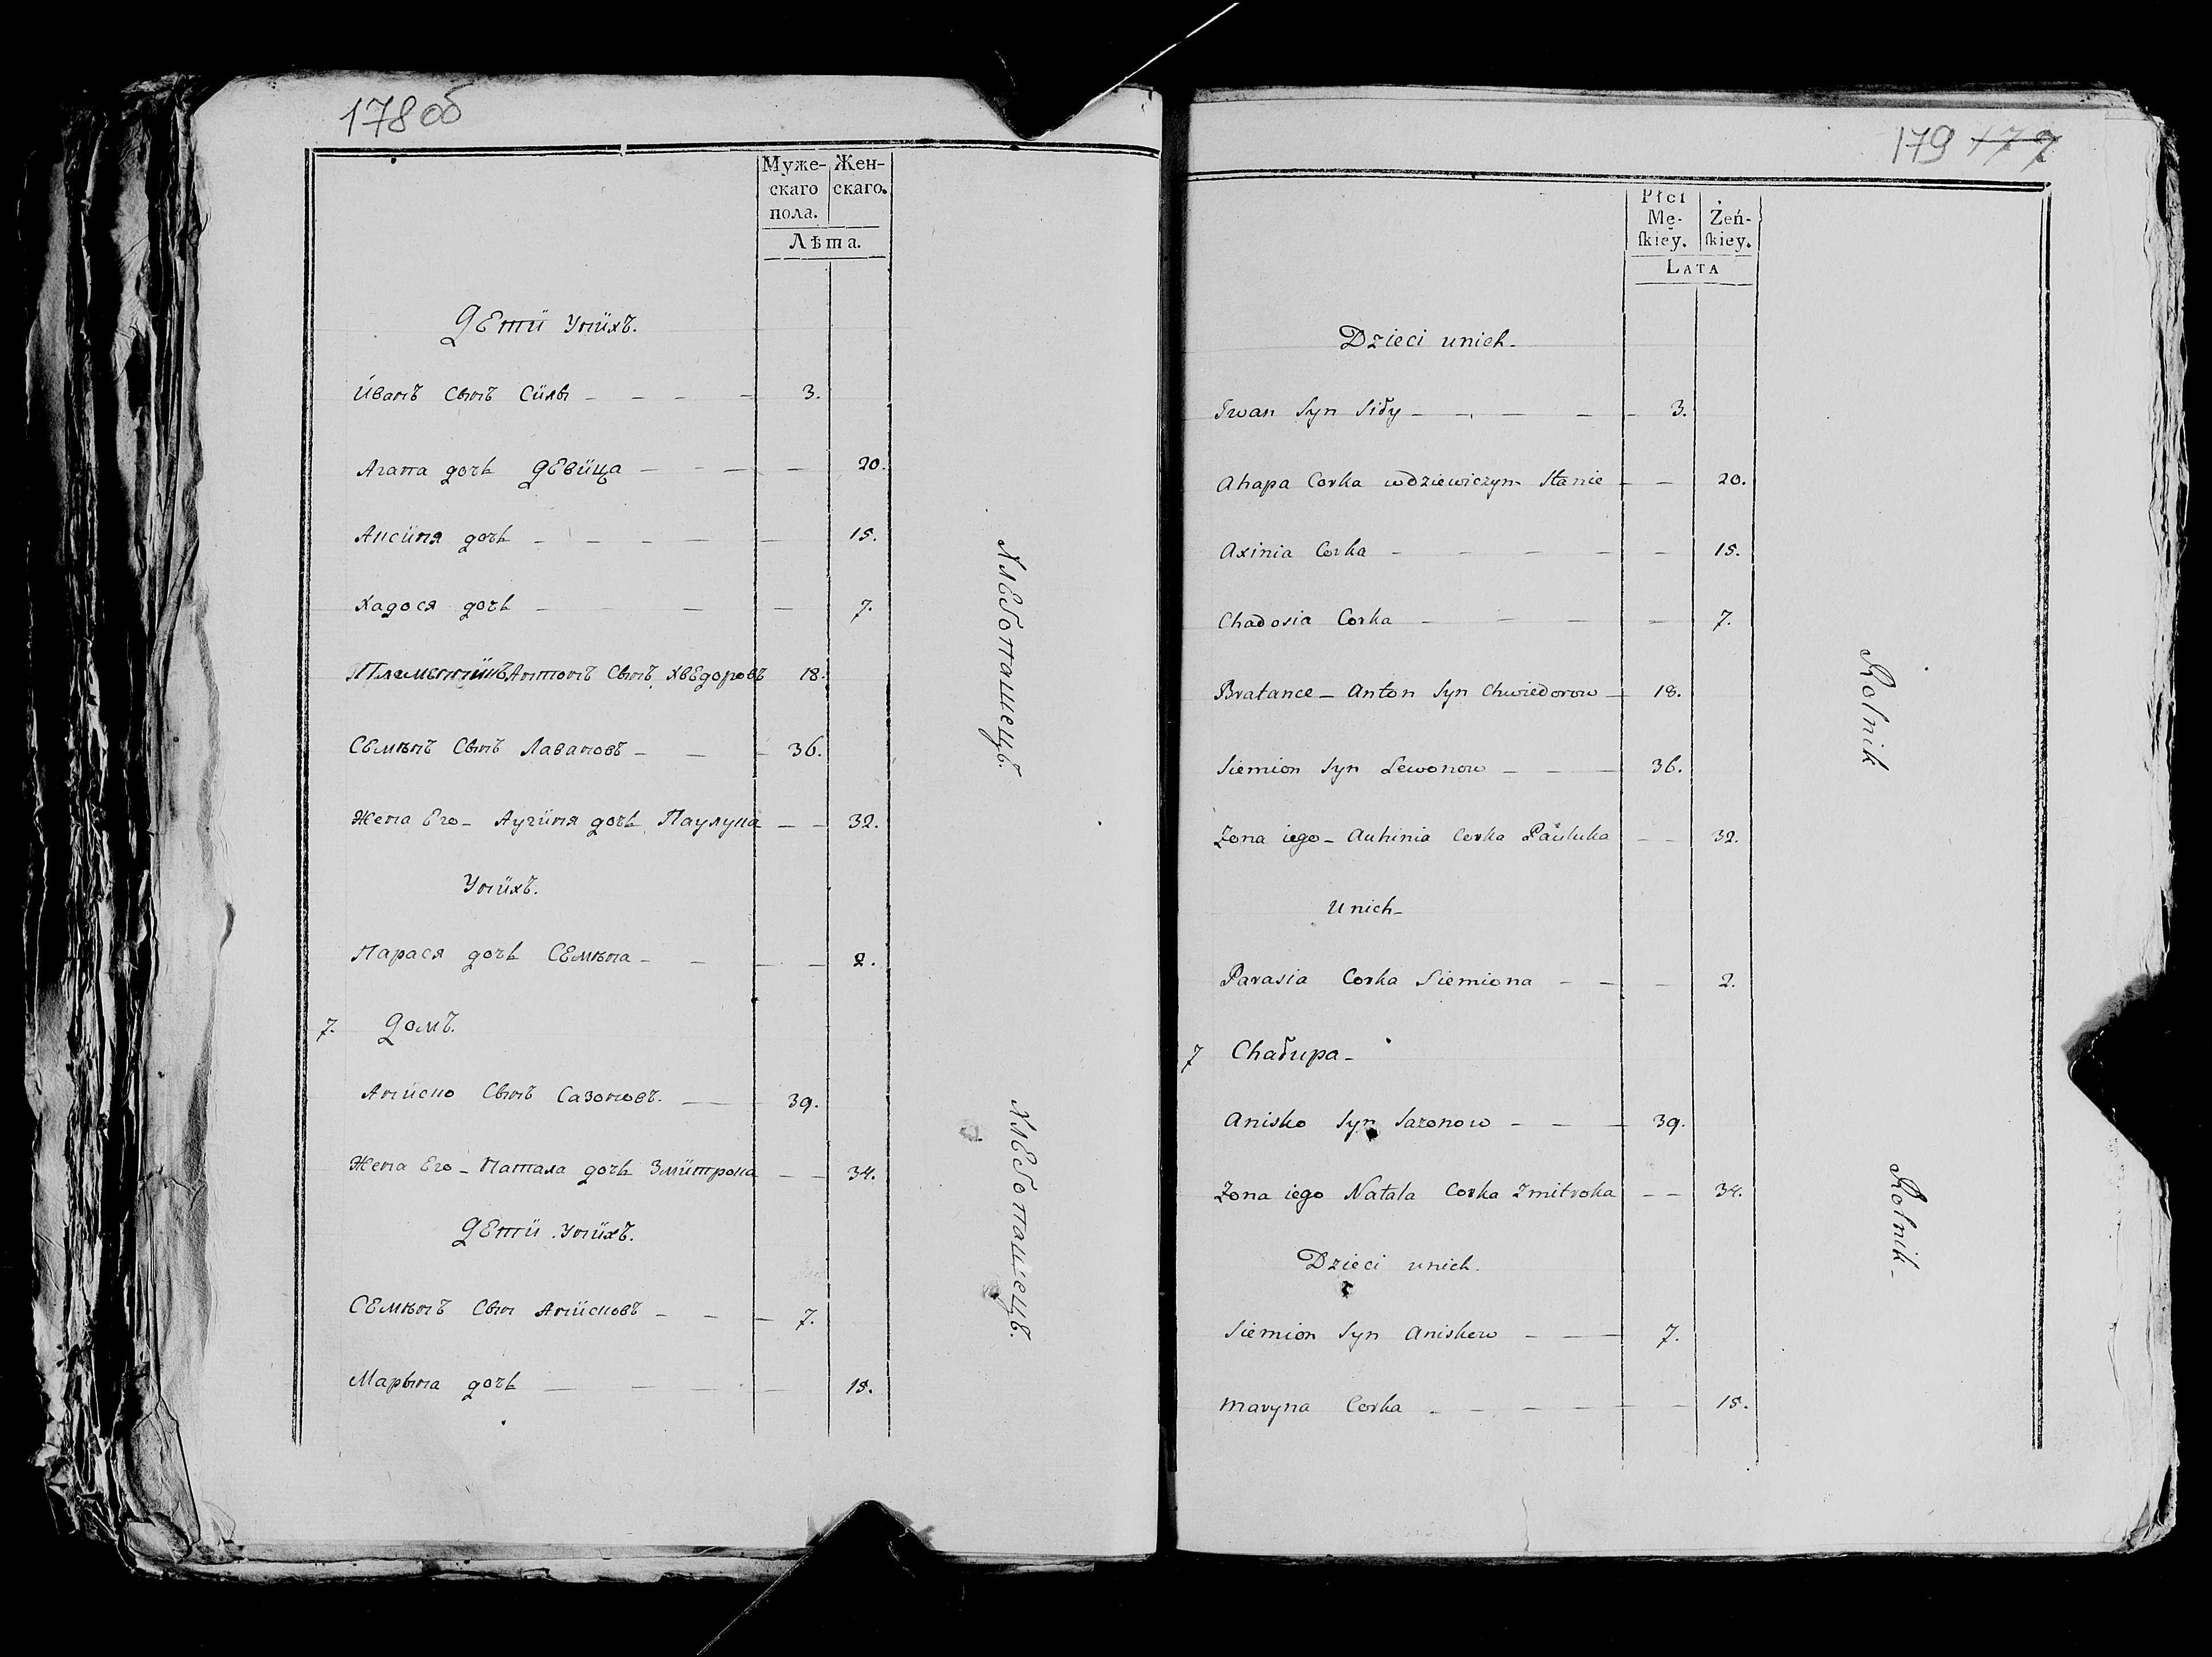 178об
Муже- Жен-
скаго скаго.
пола.
Лѣта.
Дети унихъ.
Иванъ сынъ Силы 3.
Агапа дочь девица 20.
Аксиня дочь 15.
Хадося дочь 7.
Племенникъ Антонъ сынъ Хведоровъ 18.
Семѣнъ сынъ Лавановъ 36.
Жена Его Аугиня дочь Паулука 32.
Унихъ.
Парася дочь Семѣна 2.
7. Домъ.
Аниско сынъ Сазоновъ. 39.
Жена Его Натала дочь Змитрока 34.
Дети унихъ.
Семѣнъ сын Анисковъ 7.
Марына дочь 15.
Хлебопашецъ.
Хлебопашецъ.
179 177
Płci
Mę- Żeń-
ſkiey. ſkiey.
LATA
Dzieci unich
Iwan Syn Siły 3.
Ahapa Corka wdziewiczym Stanie 20.
Axinia Corka 15.
Chadosia Corka 7.
Bratance Anton Syn Chwiedorow 18.
Siemion Syn Lewonow 36.
Zona iego Auhinia Corka Pauluka 32.
Unich
Parasia Corka Siemiona 2.
7 Chałupa
Anisko Syn Sazonow 39.
Zona iego Natala Corka Zmitroka 34.
Dzieci unich.
Siemion Syn Aniskow 7.
Maryna Corka 15.
Rolnik
Rolnik